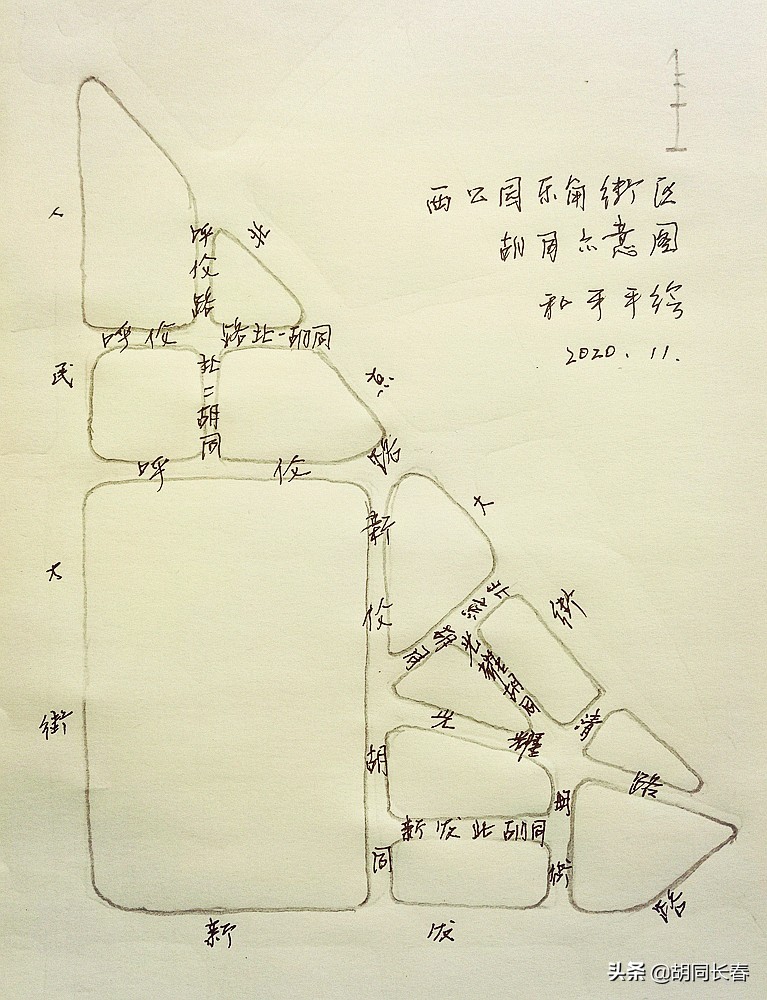 西公园东角街区
胡同示意图
和平手绘
2020.11.
人民大街
呼伦路
呼伦路北一胡同
北二胡同
呼伦路
北京大街
新伦胡同
胡同
光耀胡同
光耀路
清明街
新发北胡同
新发路
头条 @胡同长春